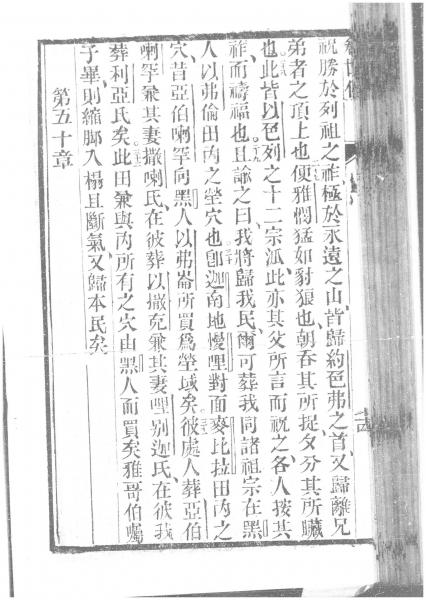 祝勝於列祖之祚極於永遠之山皆歸約色弗之首又歸離兄
弟者之頂上也便雅憫猛如豺狼也朝吞其所捉夕分其所贓
也此皆以色列之十二宗派此亦其父所言而祝之各人按其
祚而禱福也且諭之曰我將歸我民爾可葬我同諸祖宗在黑
人以弗倫田內之塋穴也卽迦南地慢哩對面麥比拉田內之
穴昔亞伯喇罕向黑人以弗崙所買爲塋域矣彼處人葬亞伯
喇罕兼其妻撒喇氏在彼葬以撒克兼其妻哩別迦氏在彼我
葬利亞氏矣此田兼與內所有之穴由黑人而買矣雅哥伯囑
子畢則縮脚入榻且斷氣又歸本民矣
第五十章